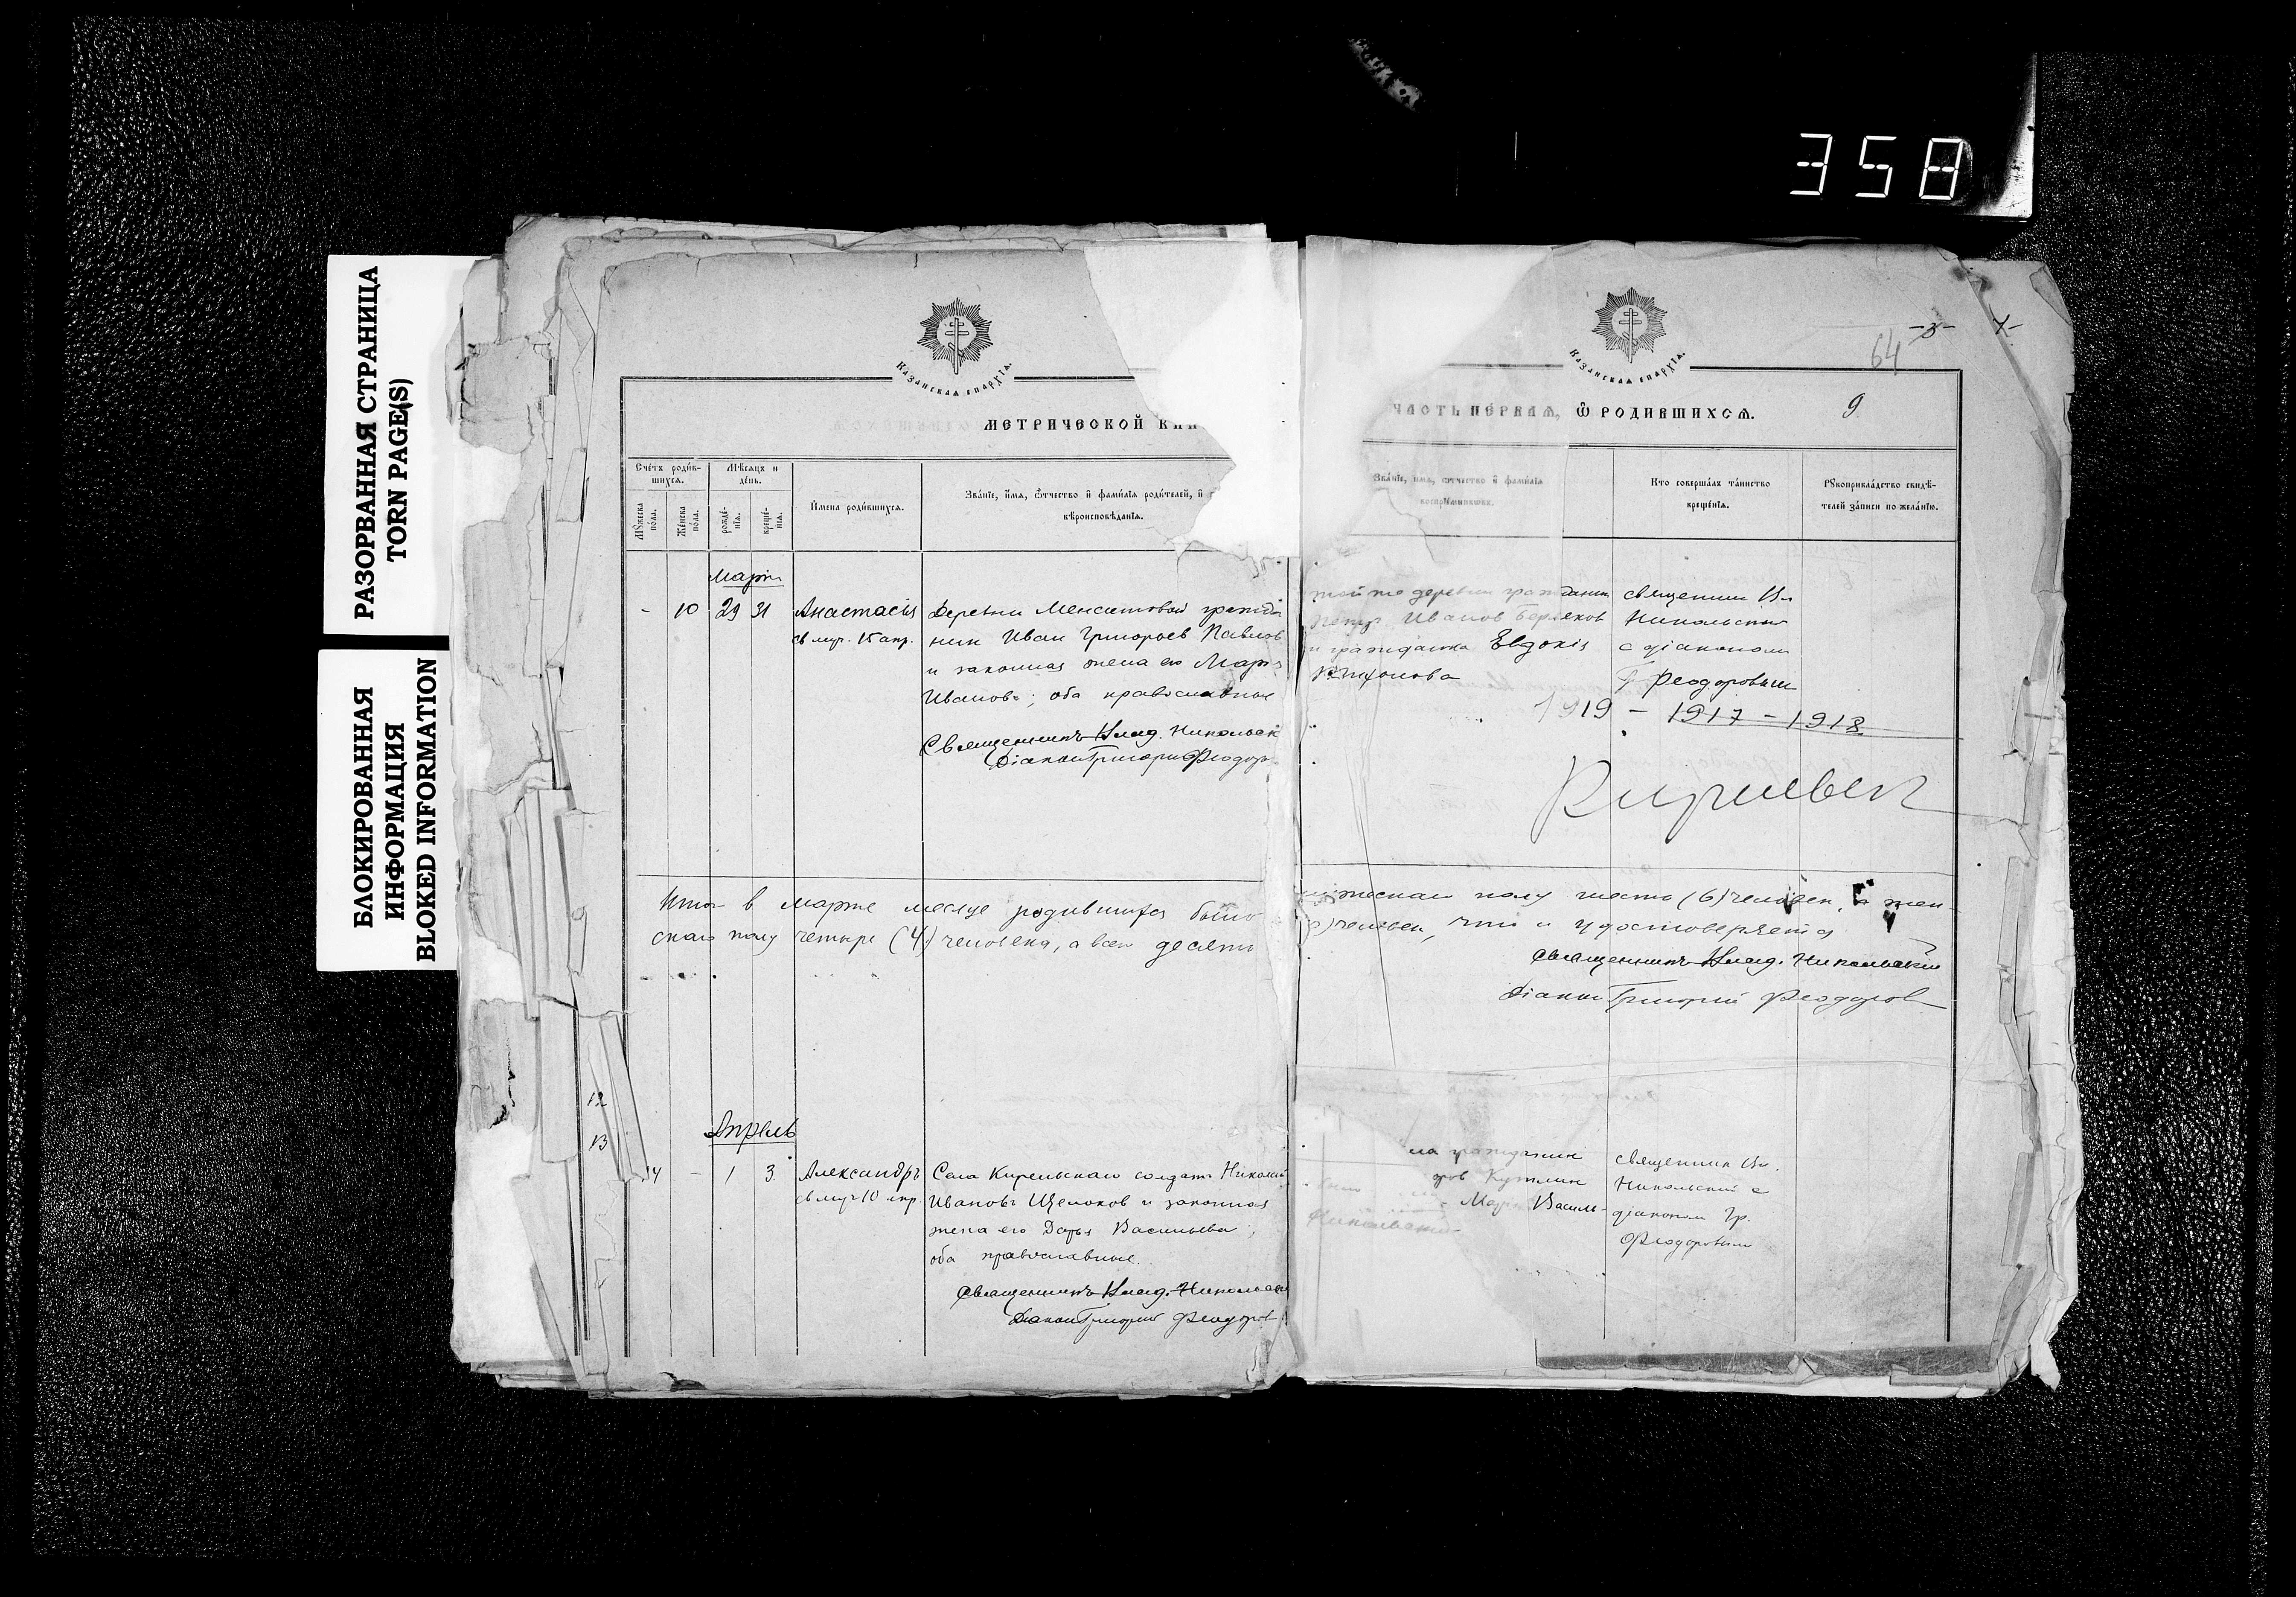 358
РАЗОРВАННАЯ СТРАНИЦА
TORN PAGE(S)
БЛОКИРОВАННАЯ
ИНФОРМАЦИЯ
BLOKED INFORMATION
КАЗАНСКАЯ ЕПАРХІЯ.
МЕТРИЧЕСКОЙ КНИ
Счётъ роди́в-
шихся.
Мѣ́сяцъ и
де́нь.
Му́жеска
по́ла.
Же́нска
по́ла.
рожде́-
нія.
креще́-
нія.
И́мена роди́вшихся.
Зва́ніе, и́мя, о́тчество и фами́лія роди́телей, и
вѣроисповѣ́данія.
Март
- 10 29 31 Анастасія
св. мур. 15 апр.
деревни гражда
нин Иван Григорьев Павлов
и законная жена его Мар
Иванова; оба православные
Священникъ Влад. Никольск
Діакон Григорій Феодор
Итого в марте месяце родившихся было
скаго полу четыре (4) человека, а всего десять
12
13
Апрель
14 - 1 3 Александръ
св. мур. 10 апр.
Села Кирельскаго солдат Николай
Ивановъ Щелоков и законная
жена его Дарья Васильева;
оба православные.
Священникъ Влад. Никольск
Діакон Григорій Феодоров
КАЗАНСКАЯ ЕПАРХІЯ.
64
-3-
7-
ЧАСТЬ ПЕРВАЯ, Ѡ РОДИВШИХСЯ.
9
Зва́ніе, и́мя, о́тчество и фами́лія
воспріе́мниковъ.
Кто соверша́лъ та́инство
креще́нія.
Рукоприкла́дство свидѣ́-
телей за́писи по жела́нію.
той же деревни гражданин
Петр Иванов
и гражданка Евдокія
священник Вл.
Никольский
с діаконом
Г. Феодоровым
1919 - 1917 - 1918
мужескаго полу шесть (6) человек, а жен-
человек, что и удостоверяется
Священникъ Влад. Никольский
Діакон Григорій Феодоров
ла гражданин
Мар Василь-
Никольский
священник Вл.
Никольский с
діаконом Гр.
Феодоровым